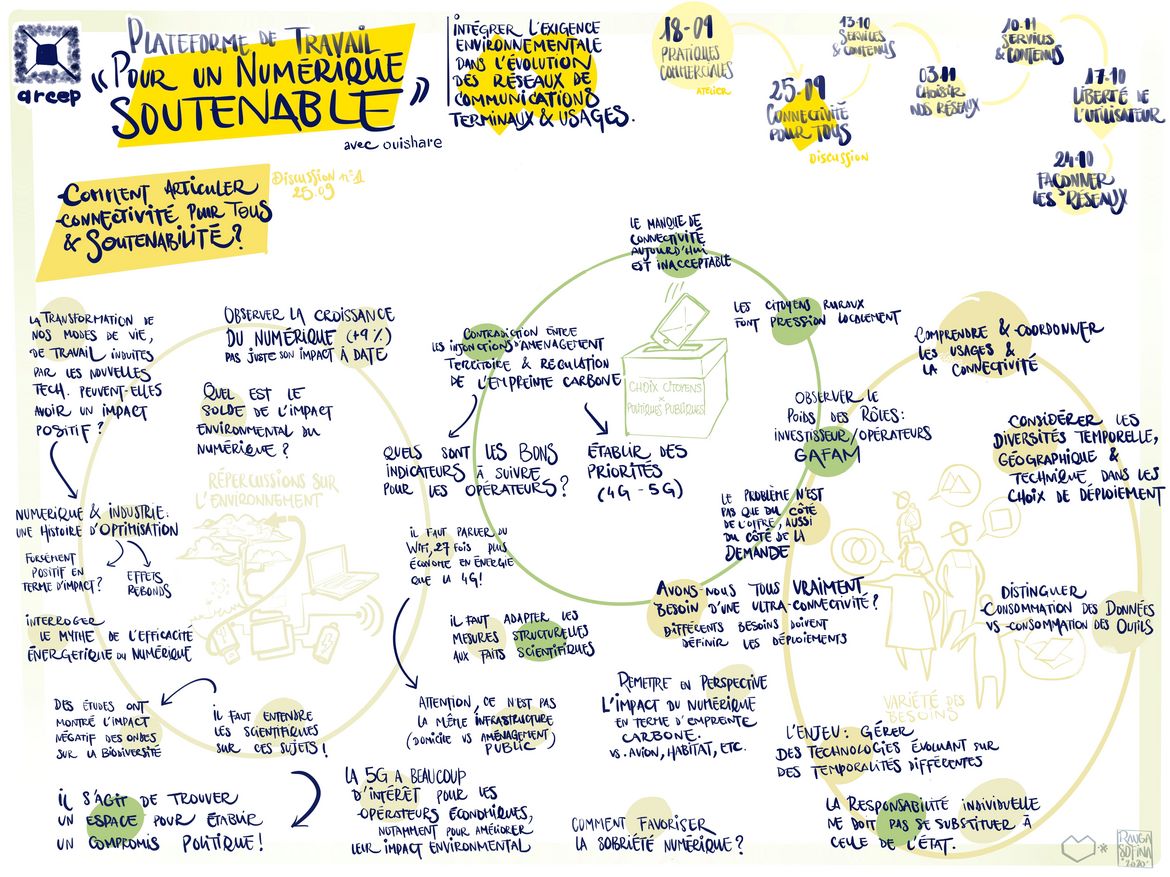 arcep
PLATEFORME DE TRAVAIL
"POUR UN NUMÉRIQUE
SOUTENABLE"
avec ouishare
INTÉGRER L'EXIGENCE
ENVIRONNEMENTALE
DANS L'ÉVOLUTION
DES RÉSEAUX DE
COMMUNICATIONS
TERMINAUX & USAGES.
18-09
PRATIQUES
COMMERCIALES
ATELIER
25.09
CONNECTIVITÉ
POUR TOUS
DISCUSSION
13-10
SERVICES
& CONTENUS
03.11
CHOISIR
NOS RÉSEAUX
10-11
SERVICES
& CONTENUS
17-10
LIBERTÉ DE
L'UTILISATEUR
24-10
FAÇONNER
LES RÉSEAUX
COMMENT ARTICULER
CONNECTIVITÉ POUR TOUS
& SOUTENABILITÉ?
DISCUSSION N°1
25.09
LA TRANSFORMATION DE
NOS MODES DE VIE,
DE TRAVAIL INDUITES
PAR LES NOUVELLES
TECH. PEUVENT-ELLES
AVOIR UN IMPACT
POSITIF?
OBSERVER LA CROISSANCE
DU NUMÉRIQUE (+9%)
PAS JUSTE SON IMPACT À DATE
QUEL EST LE
SOLDE DE L'IMPACT
ENVIRONMENTAL DU
NUMÉRIQUE?
RÉPERCUSSIONS SUR
L'ENVIRONNEMENT
NUMÉRIQUE & INDUSTRIE:
UNE HISTOIRE D'OPTIMISATION
FORSÉMENT
POSITIF EN
TERME D'IMPACT?
EFFETS
REBONDS
INTERROGER
LE MYTHE DE L'EFFICACITÉ
ÉNERGETIQUE DU NUMÉRIQUE
DES ÉTUDES ONT
MONTRÉ L'IMPACT
NÉGATIF DES ONDES
SUR LA BIODIVERSITÉ
IL FAUT ENTENDRE
LES SCIENTIFIQUES
SUR CES SUJETS!
IL S'AGIT DE TROUVER
UN ESPACE POUR ÉTABLIR
UN COMPROMIS POLITIQUE!
LE MANQUE DE
CONNECTIVITÉ
AUJOURD'HUI
EST INACCEPTABLE
CONTRADICTION ENTRE
LES INJONCTIONS D'AMENAGEMENT
TERRITOIRE & RÉGULATION
DE L'EMPREINTE CARBONE
CHOIX CITOYENS
×
POLITIQUES PUBLIQUES
LES CITOYENS RURAUX
FONT PRESSION LOCALEMENT
QUELS SONT LES BONS
INDICATEURS À SUIVRE
POUR LES OPÉRATEURS?
ÉTABLIR DES
PRIORITÉS
(4G - 5G)
OBSERVER LE
POIDS DES RÔLES:
INVESTISSEUR/OPÉRATEURS
GAFAM
LE PROBLÈME N'EST
PAS QUE DU CÔTÉ
DE L'OFFRE, AUSSI
DU CÔTÉ DE LA
DEMANDE
IL FAUT PARLER DU
WIFI, 27 FOIS PLUS
ÉCONOME EN ÉNERGIE
QUE LA 4G!
IL FAUT ADAPTER LES
MESURES STRUCTURELLES
AUX FAITS SCIENTIFIQUES
AVONS-NOUS TOUS VRAIMENT
BESOIN D'UNE ULTRA-CONNECTIVITÉ?
DIFFÉRENTS BESOINS DOIVENT
DÉFINIR LES DÉPLOIEMENTS
ATTENTION, CE N'EST PAS
LA MÊME INFRASTRUCTURE
(DOMICILE VS AMÉNAGEMENT
PUBLIC)
REMETTRE EN PERSPECTIVE
L'IMPACT DU NUMÉRIQUE
EN TERME D'EMPRENTE
CARBONE.
VS. AVION, HABITAT, ETC.
LA 5G A BEAUCOUP
D'INTÉRÊT POUR LES
OPÉRATEURS ÉCONOMIQUES,
NOTAMMENT POUR AMÉLIORER
LEUR IMPACT ENVIRONMENTAL
COMMENT FAVORISER
LA SOBRIÉTÉ NUMÉRIQUE?
COMPRENDRE & COORDONNER
LES USAGES &
LA CONNECTIVITÉ
CONSIDÉRER LES
DIVERSITÉS TEMPORELLE,
GÉOGRAPHIQUE &
TECHNIQUE DANS LES
CHOIX DE DÉPLOIEMENT
DISTINGUER
CONSOMMATION DES DONNÉES
VS CONSOMMATION DES OUTILS
VARIÉTÉ DES
BESOINS
L'ENJEU: GÉRER
DES TECHNOLOGIES ÉVOLUANT SUR
DES TEMPORALITÉS DIFFÉRENTES
LA RESPONSABILITÉ INDIVIDUELLE
NE DOIT PAS SE SUBSTITUER À
CELLE DE L'ÉTAT.
RAUGA
SOFINA
2020